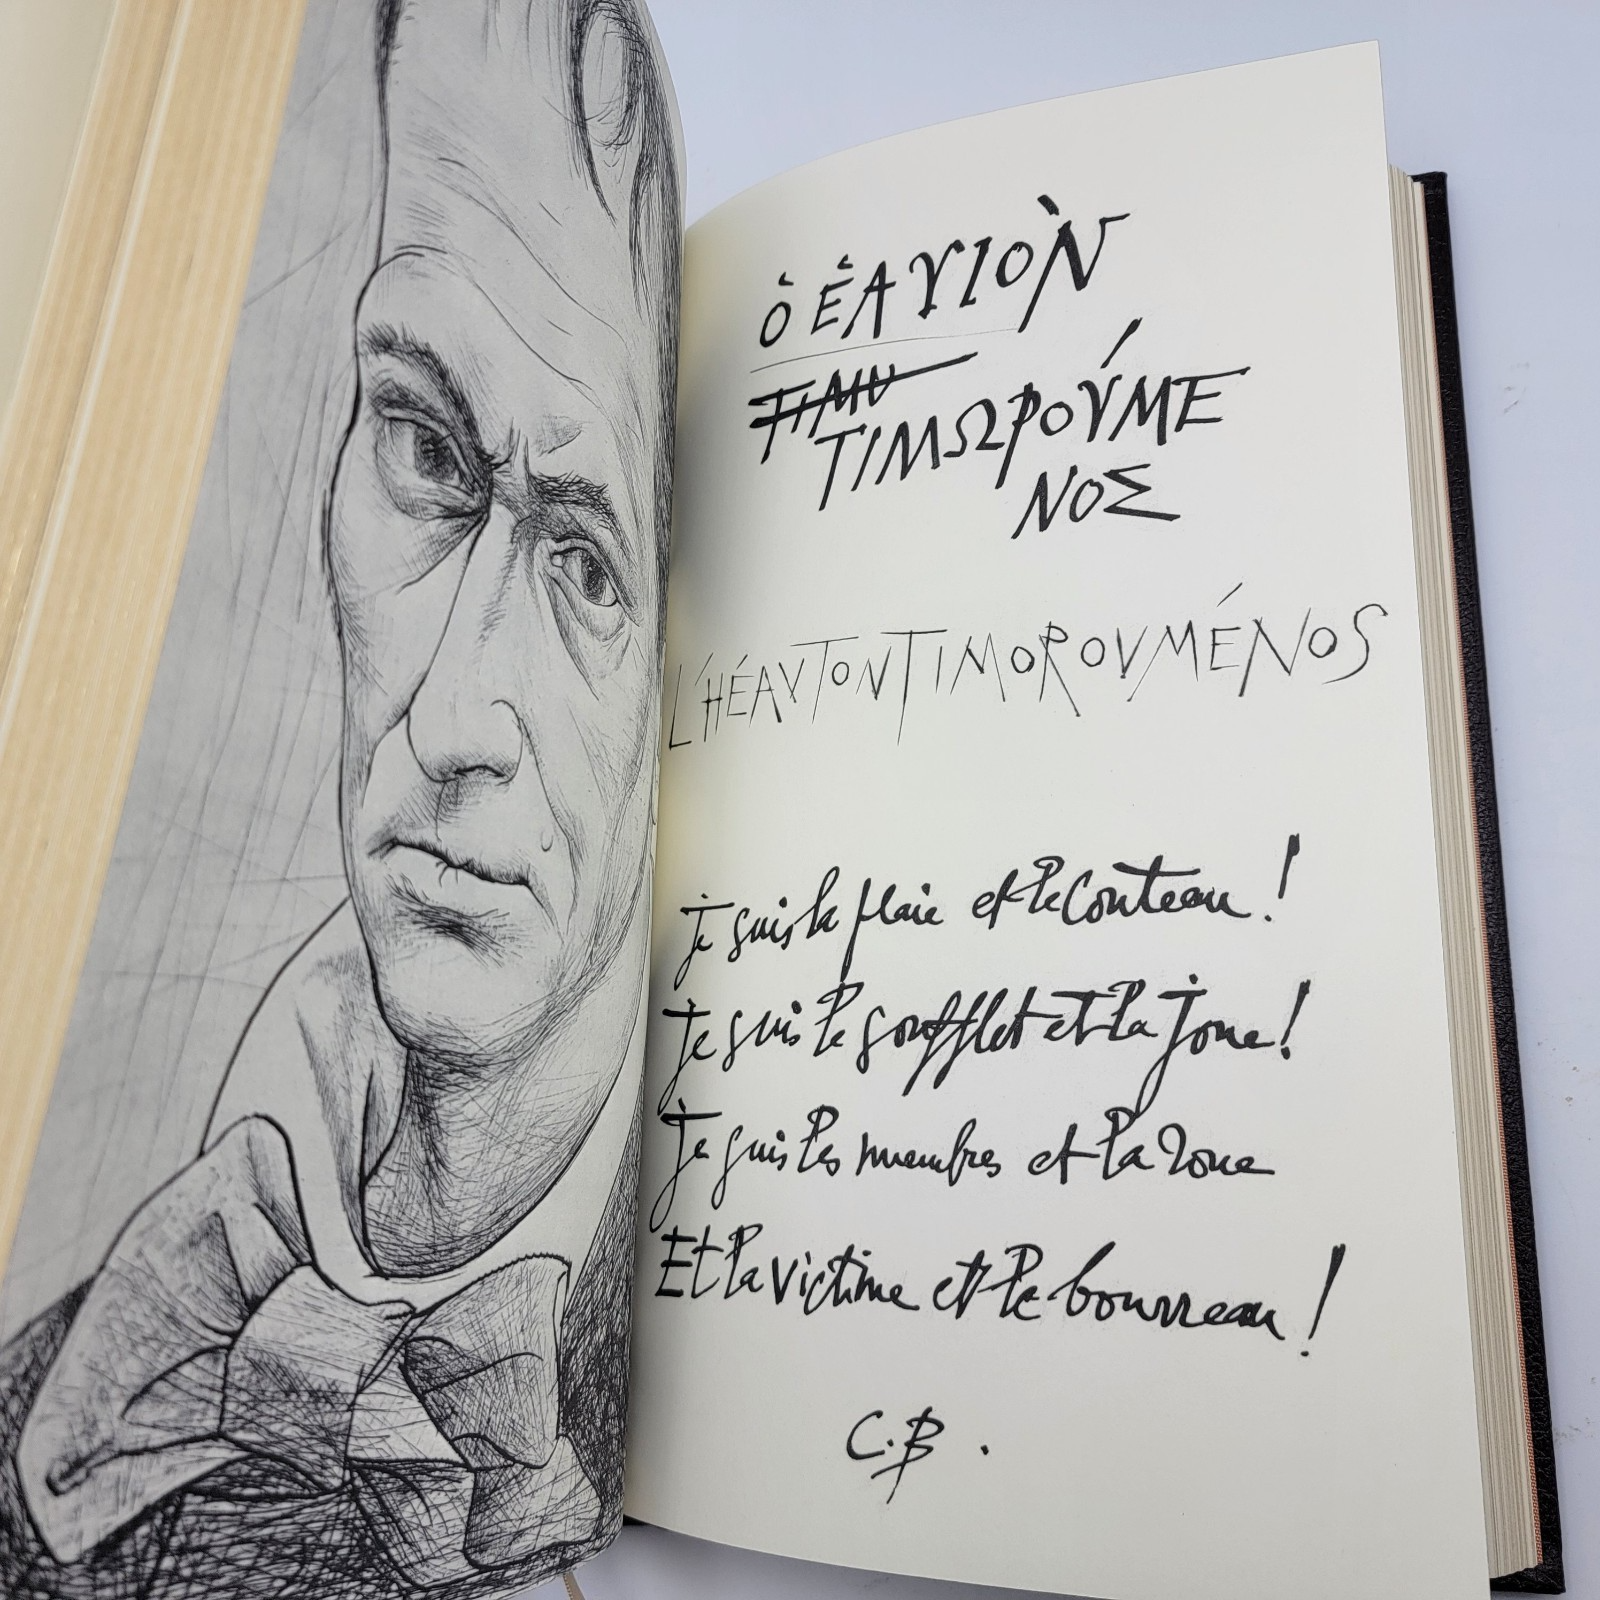 Ὁ ἙΑΥΙῸΝ
ΤΙΜΩ
ΤΙΜΩΡΟΎΜΕ
ΝΟΣ
L'HÉAUTONTIMOROUMÉNOS
Je suis la plaie et le couteau !
Je suis le soufflet et la joue !
Je suis les membres et la roue
Et la victime et le bourreau !
C.B.